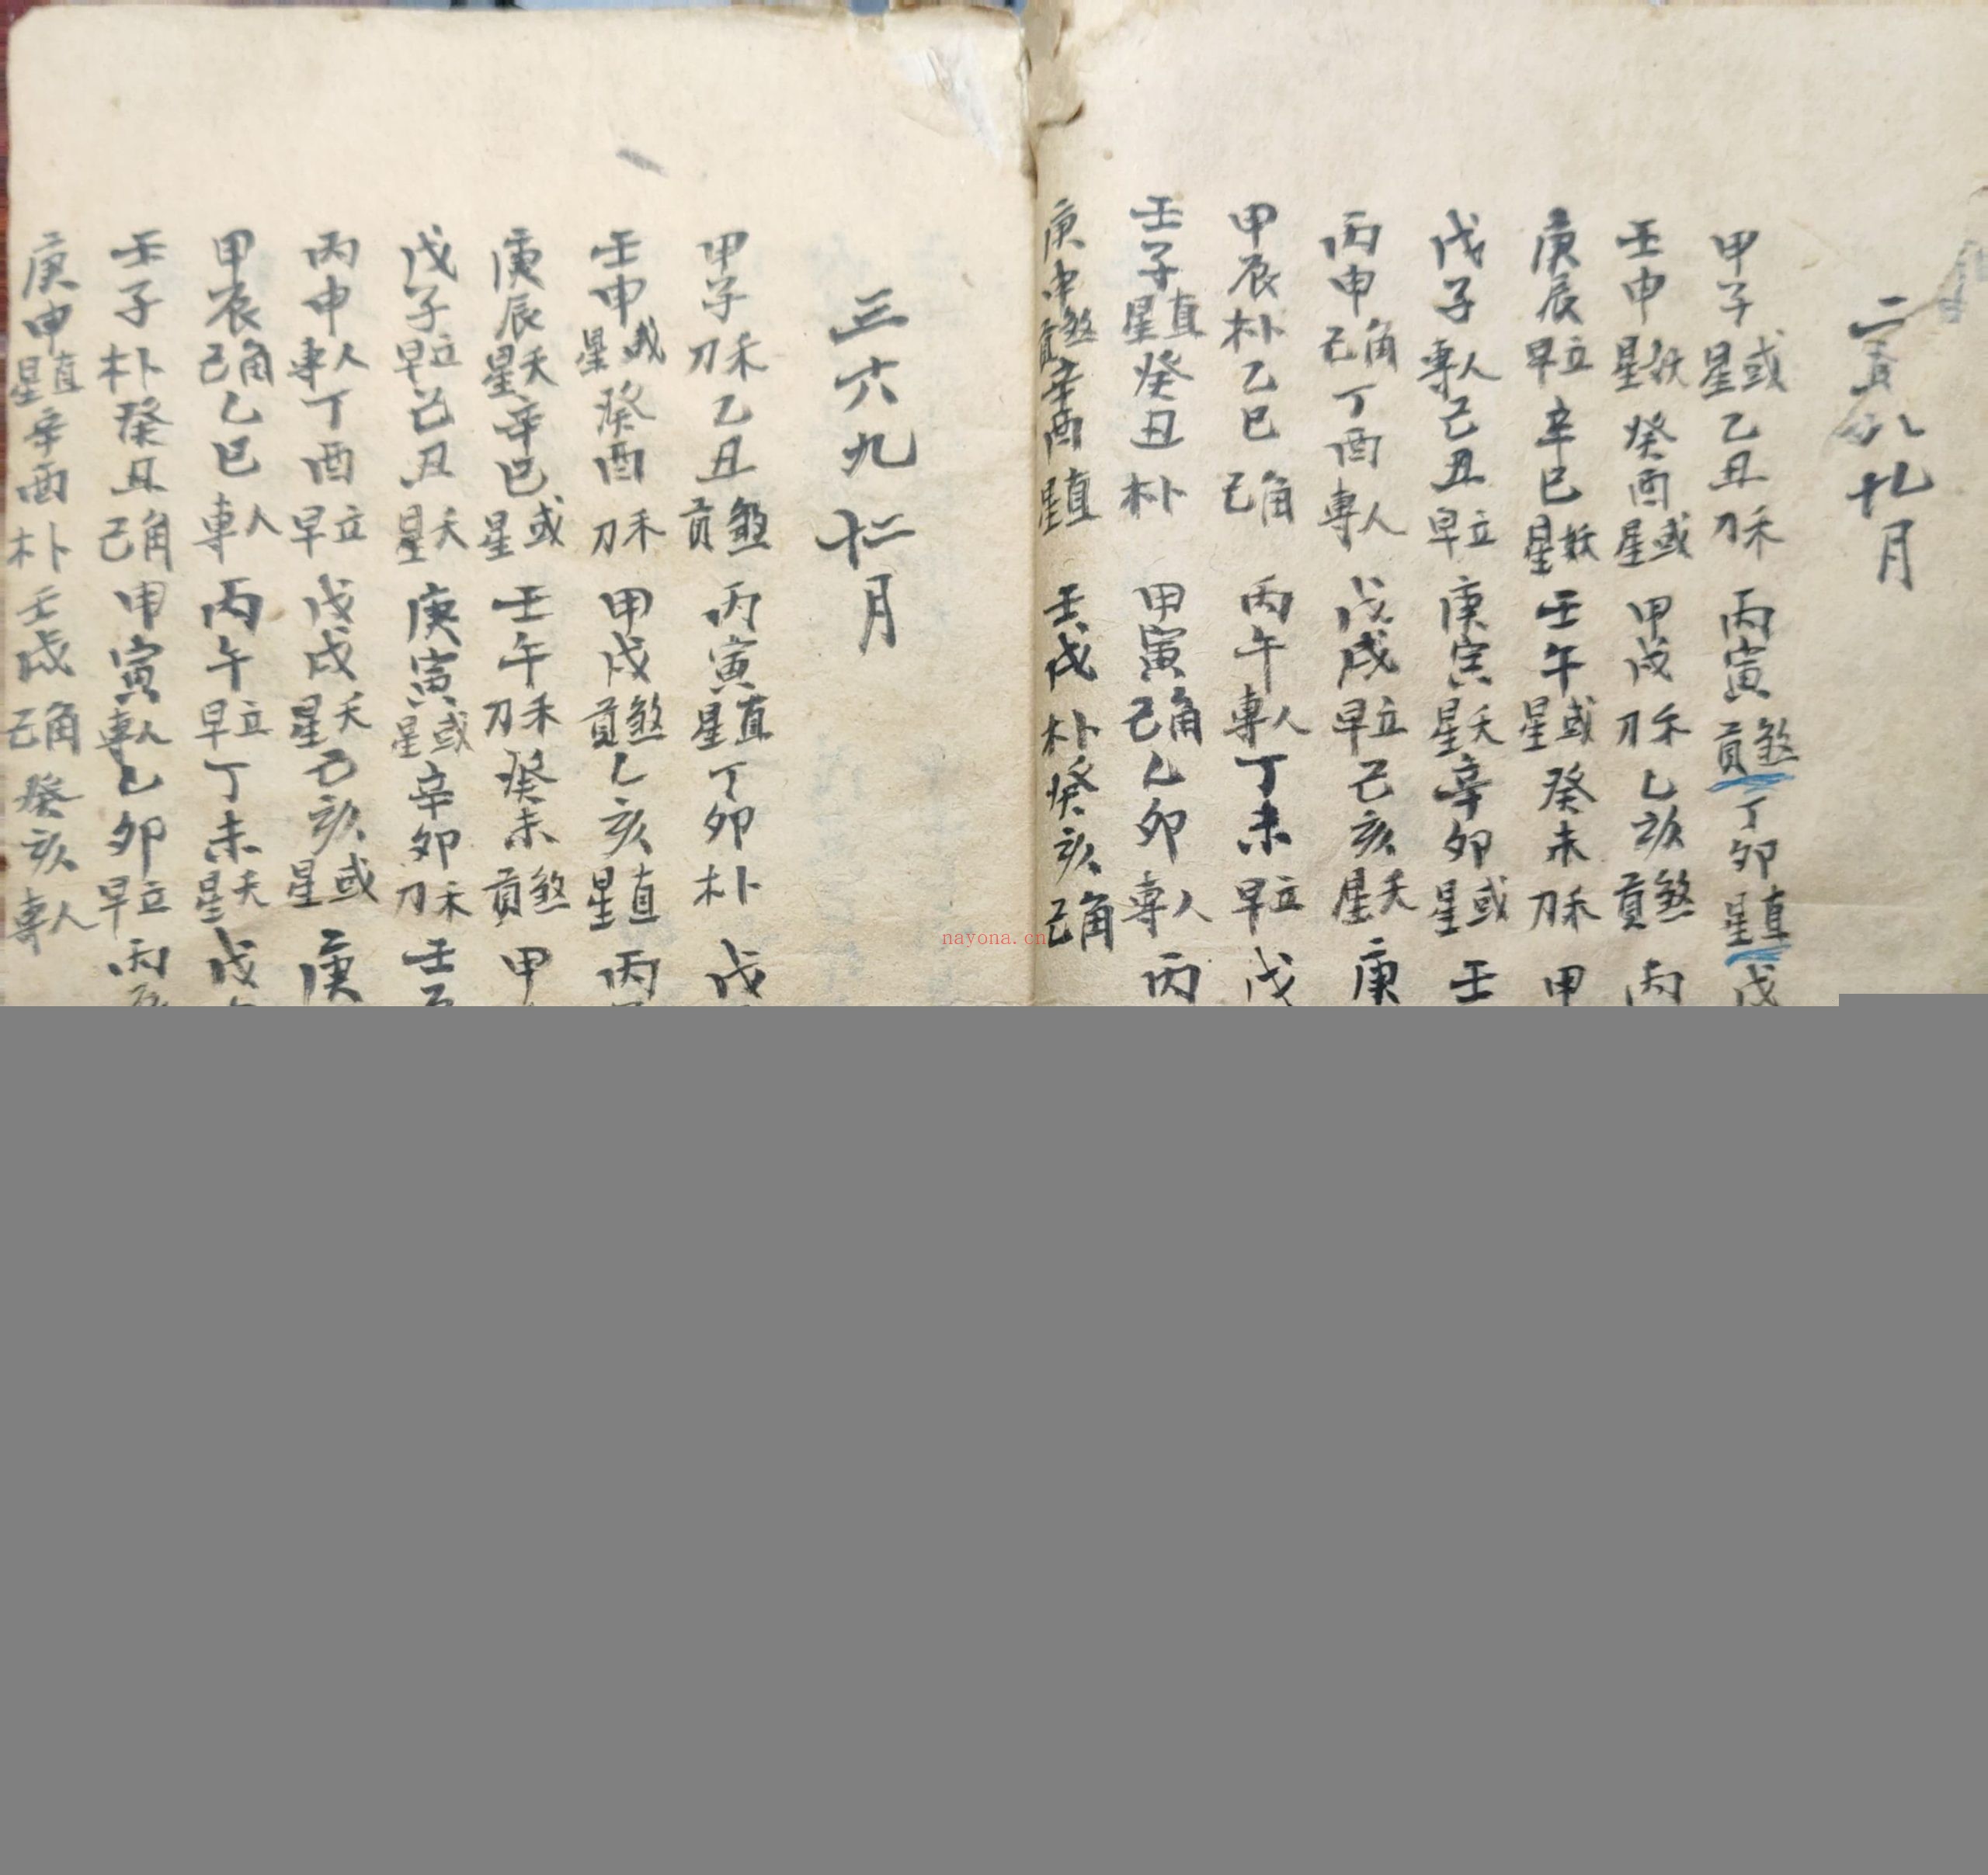 二五八十一月
甲子星或乙丑刀禾丙寅貢煞丁卯星直戊
壬申星妖癸酉星或甲戌刀禾乙亥貢煞丙
庚辰早立辛巳星妖壬午星或癸未刀禾甲
戊子專人己丑早立庚寅星夭辛卯星或壬
丙申己角丁酉專人戊戌早立己亥星夭庚
甲辰朴乙巳己角丙午專人丁未早立戊
壬子星直癸丑朴甲寅己角乙卯專人丙
庚申貢煞辛酉星直壬戌朴癸亥己角
三六九十二月
甲子刀禾乙丑貢煞丙寅星直丁卯朴戊
壬申星或癸酉刀禾甲戌貢煞乙亥星直丙
庚辰星夭辛巳星或壬午刀禾癸未貢煞甲
戊子早立己丑星夭庚寅星或辛卯刀禾壬
丙申專人丁酉早立戊戌星夭己亥星或庚
甲辰己角乙巳專人丙午早立丁未星夭戊
壬子朴癸丑己角甲寅專人乙卯早立丙
庚申星直辛酉朴壬戌己角癸亥專人
nayona.cn